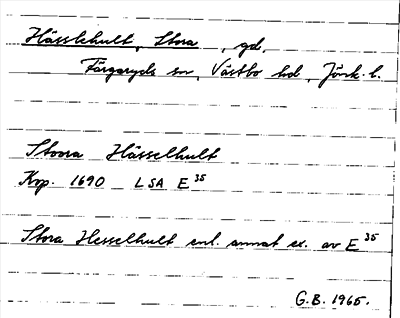 Hässlehult, Stora, gd,
Färgaryds sn, Västbo hd, Jönk. l.
Stoora Hässelhult
Kop. 1690 LSA E 35
Stora Hesselhult enl. annat ex. av E 35
G.B. 1965.